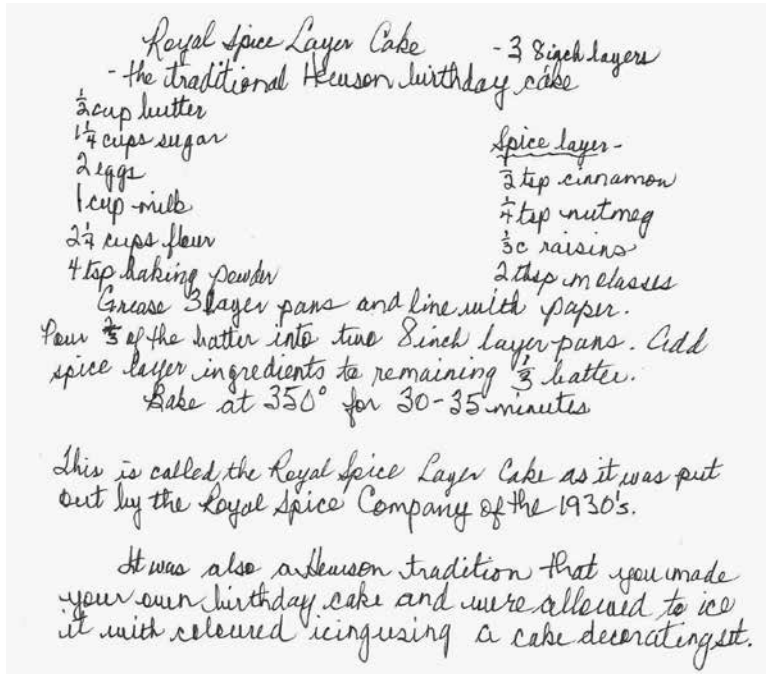 Royal Spice Layer Cake - 3 8inch layers
- the traditional Hewson birthday cake
½ cup butter
1¼ cups sugar
2 eggs
1 cup milk
2¼ cups flour
4 tsp baking powder
Spice layer -
½ tsp cinnamon
¼ tsp nutmeg
⅓ c raisins
2 tbsp molasses
Grease 3 layer pans and line with paper.
Pour ⅔ of the batter into two 8inch layer pans. Add
spice layer ingredients to remaining ⅓ batter.
Bake at 350° for 30-35 minutes
This is called the Royal Spice Layer Cake as it was put
out by the Royal Spice Company of the 1930's.
It was also a Hewson tradition that you made
your own birthday cake and were allowed to ice
it with coloured icing using a cake decorating set.